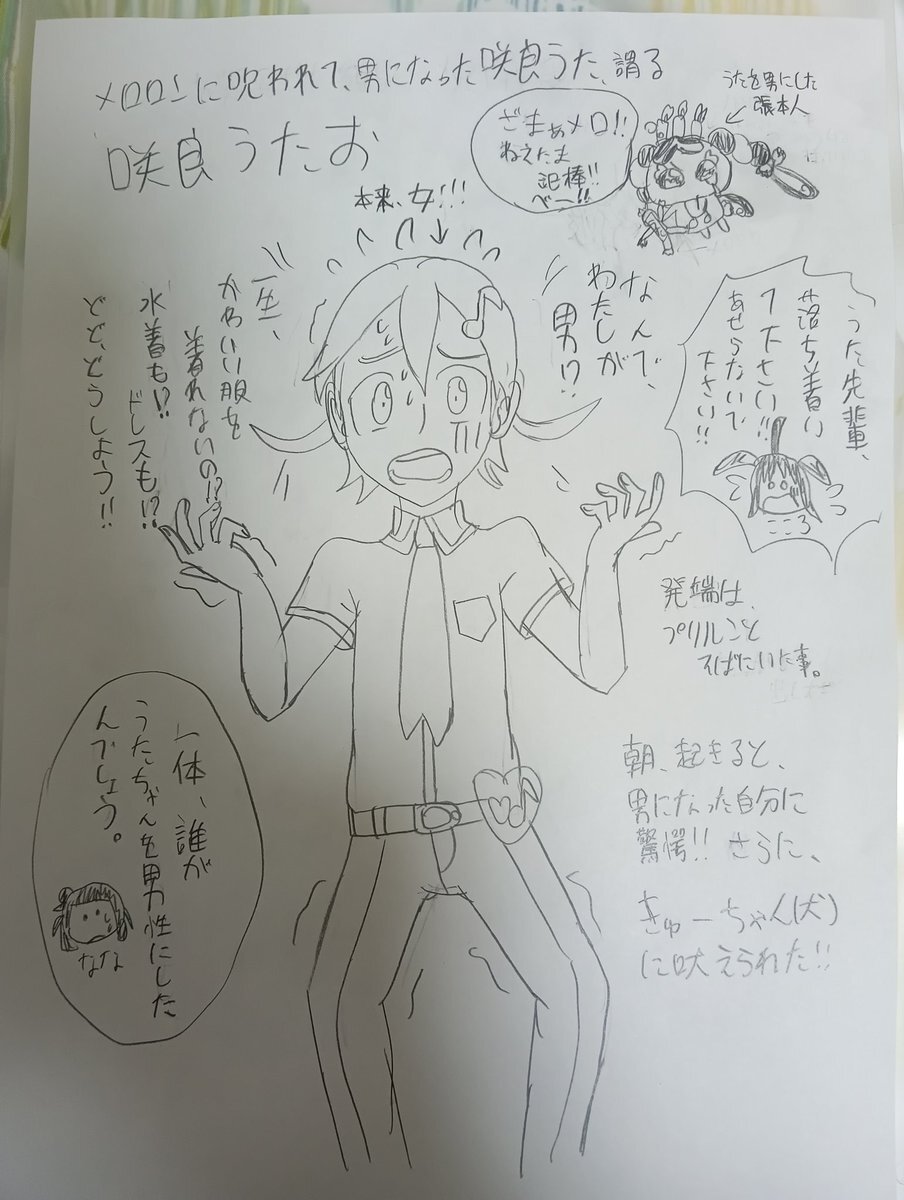 メロロンに呪われて、男になった咲良うた、謂る
咲良うたお
うたを男にした
張本人
ざまぁメロ!!
ねえたま
泥棒!!
べー!!
本来、女!!!
なんで、
わたしが
男!?
一生、
かわいい服を
着れないの!?
水着も!?
ドレスも!?
どどどうしよう!!
うた先輩、
落ち着い
て下さい!!
あせらないで
下さい!!
こころ
発端は、
プリルンと
そばにいた事。
一体、誰が
うたちゃんを男性にした
んでしょう。
なな
朝、起きると、
男になった自分に
驚愕!! さらに、
きゅーちゃん(犬)
に吠えられた!!